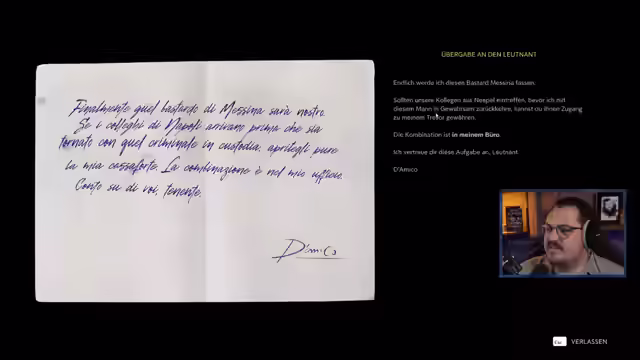 Finalmente quel bastardo di Messina sarà nostro.
Se i colleghi di Napoli arrivano prima che sia
tornato con quel criminale in custodia, apritegli pure
la mia cassaforte. La combinazione è nel mio ufficio.
Conto su di voi, tenente.
D'Amico
ÜBERGABE AN DEN LEUTNANT
Endlich werde ich diesen Bastard Messina fassen.
Sollten unsere Kollegen aus Neapel eintreffen, bevor ich mit
diesem Mann in Gewahrsam zurückkehre, kannst du ihnen Zugang
zu meinem Tresor gewähren.
Die Kombination ist in meinem Büro.
Ich vertraue dir diese Aufgabe an, Leutnant.
D'Amico
Esc VERLASSEN